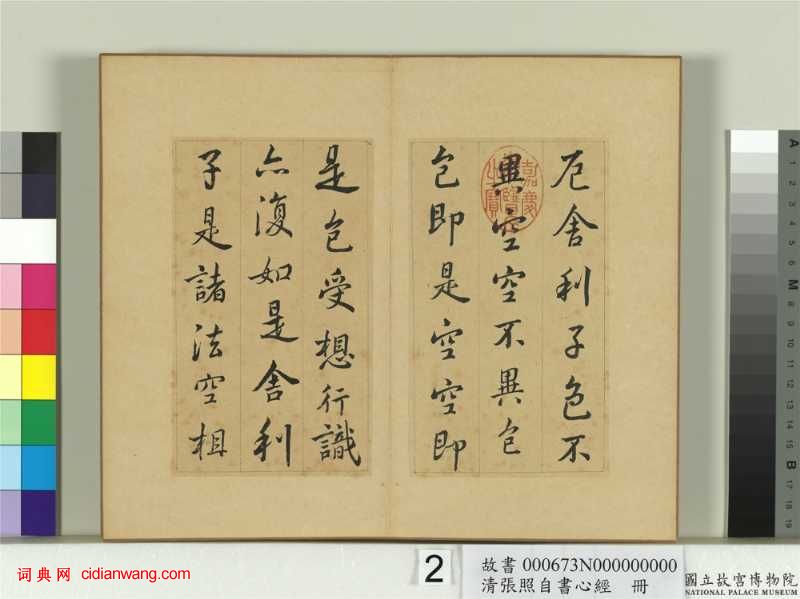 厄舍利子色不
異空空不異色
色即是空空即
是色受想行識
亦復如是舍利
子是諸法空相
嘉慶御覽之寶
2
故書 000673N000000000
清張照自書心經 冊
國立故宮博物院
NATIONAL PALACE MUSEUM
词典网 cidianwang.com
A 1 2 3 4 5 6 M 8 9 10 11 12 13 14 15 B 17 18 19